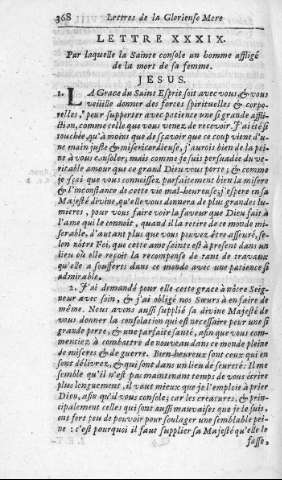 368 Lettres de la Glorieuse Mere
LETTRE XXXIX.
Par laquelle la Sainte console un homme affligé
de la mort de sa femme.
JESUS.
1. LA Grace du Saint Esprit soit avec vous & vous
veüille donner des forces spirituelles & corpo-
relles, pour supporter avec patience une si grande afflic-
tion, comme celle que vous venez de recevoir. J'ai été si
touchée, qu'à moins que de sçavoir que ce coup vient d'u-
ne main juste & misericordieuse, j'aurois bien de la pei-
ne à vous consoler; mais comme je suis persuadée du ve-
ritable amour que ce grand Dieu vous porte; & comme
je sçai que vous connoissez parfaitement bien la misere
& l'inconstance de cette vie mal-heureuse; j'espere en sa
Majesté divine, qu'elle vous donnera de plus grandes lu-
mieres, pour vous faire voir la faveur que Dieu fait à
l'ame qui le connoit, quand il la retire de ce monde mi-
serable, d'autant plus que vous pouvez être assuré, se-
lon nôtre Foi, que cette ame sainte est à present dans un
lieu où elle reçoit la recompense de tant de travaux
qu'elle a soufferts dans ce monde avec une patience si
admirable.
2. J'ai demandé pour elle cette grace à nôtre Sei-
gneur avec soin, & j'ai obligé nos Sœurs à en faire de
même. Nous avons aussi supplié sa divine Majesté de
vous donner la consolation qui est necessaire pour une si
grande perte, & une parfaite santé, afin que vous com-
menciez à combattre de nouveau dans ce monde pleine
de miseres & de guerre. Bien-heureux sont ceux qui en
sont délivrez, & qui sont dans un lieu de seureté. Il me
semble qu'il n'est pas maintenant temps de vous écrire
plus longuement, il vaut mieux que je l'emploie à prier
Dieu, afin qu'il vous console; car les creatures, & prin-
cipalement celles qui sont aussi mauvaises que je le suis,
ont fors peu de pouvoir pour soulager une semblable pei-
ne: c'est pourquoi il faut supplier sa Majesté qu'elle le
fasse,